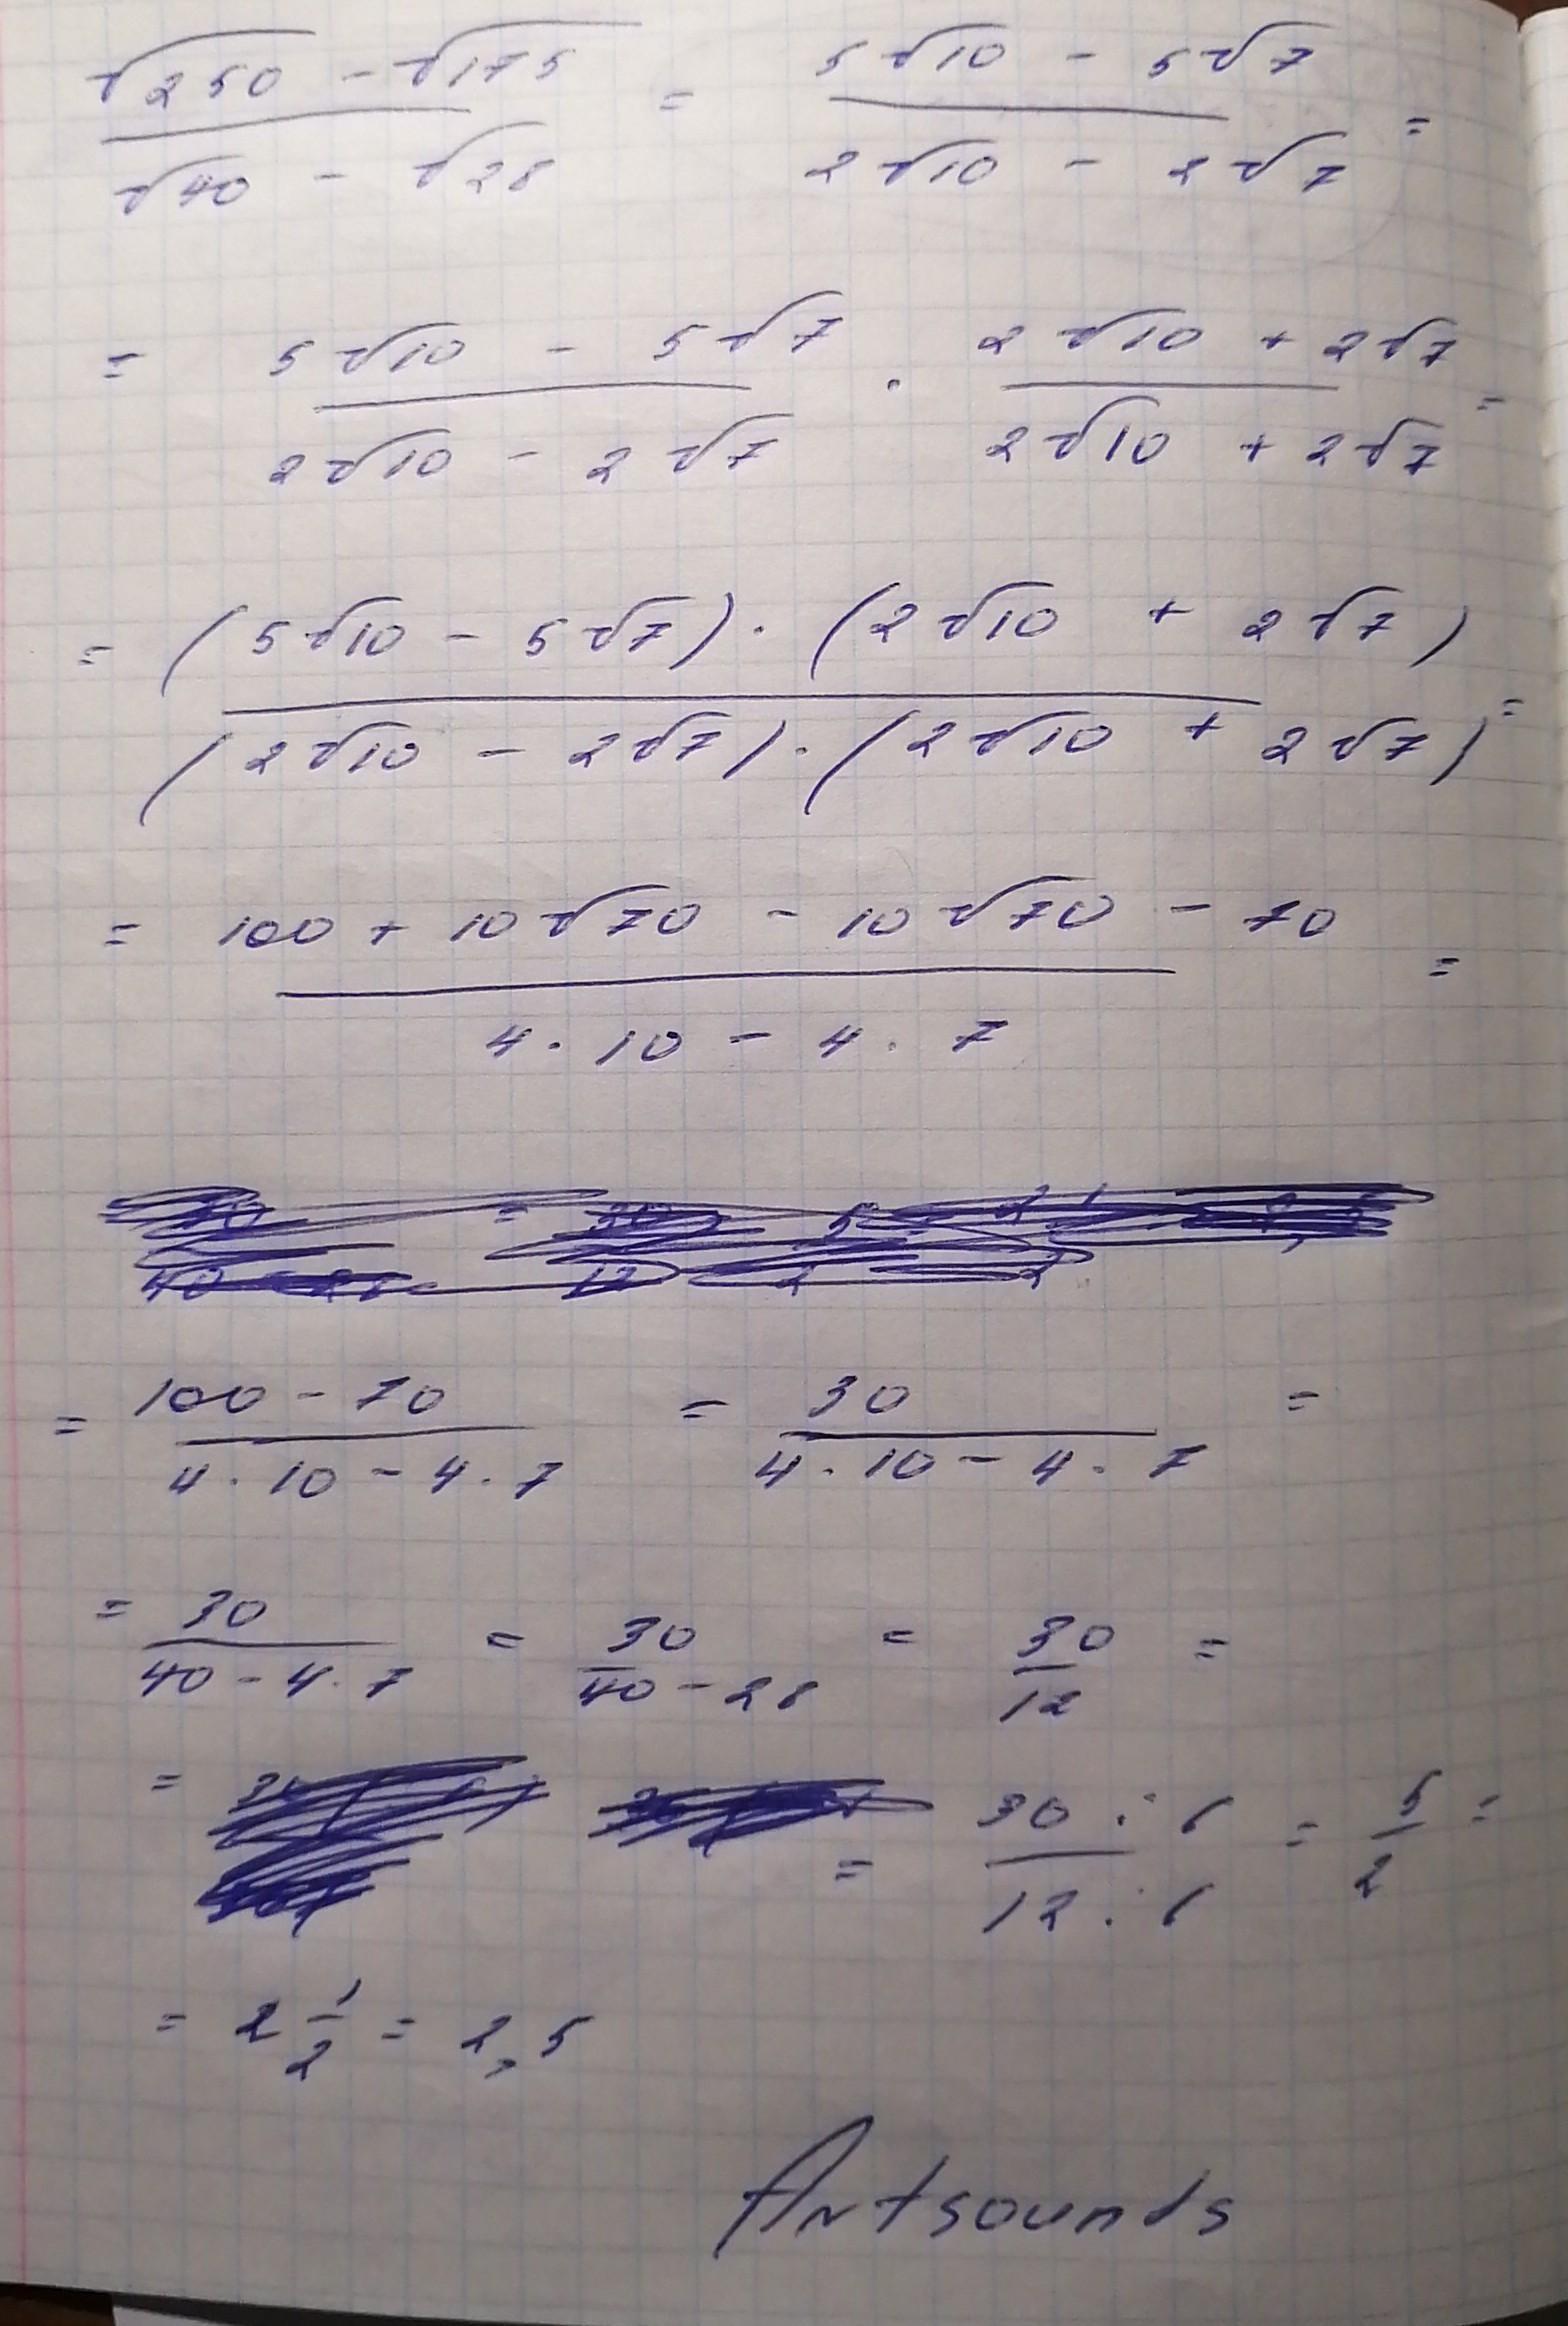 √250 − √175 / √40 − √28 = 5√10 − 5√7 / 2√10 − 2√7 =
= 5√10 − 5√7 / 2√10 − 2√7 · 2√10 + 2√7 / 2√10 + 2√7 =
= (5√10 − 5√7) · (2√10 + 2√7) / (2√10 − 2√7) · (2√10 + 2√7) =
= 100 + 10√70 − 10√70 − 70 / 4 · 10 − 4 · 7 =
= 100 − 70 / 4 · 10 − 4 · 7 = 30 / 4 · 10 − 4 · 7 =
= 30 / 40 − 4 · 7 = 30 / 40 − 28 = 30 / 12 =
= = 30 : 6 / 12 : 6 = 5 / 2 =
= 2 1/2 = 2,5
Artsounds